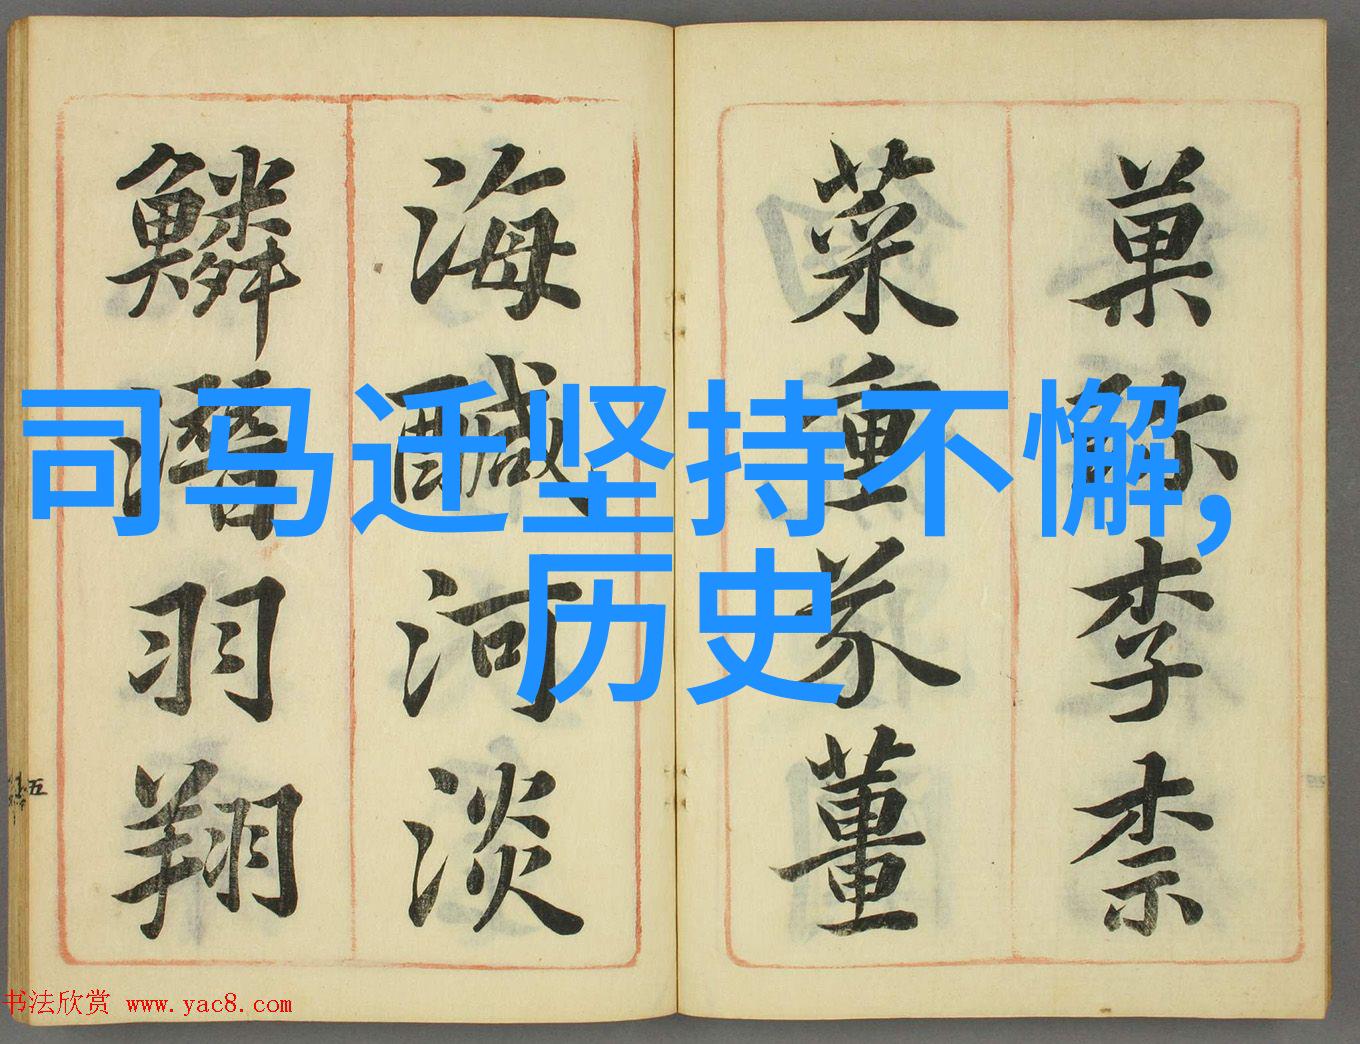 司马迁坚持不懈,
历史
菓珎李柰
菜重芥薑
海醎河淡
鱗潛羽翔
五
书法欣赏 www.yac8.com